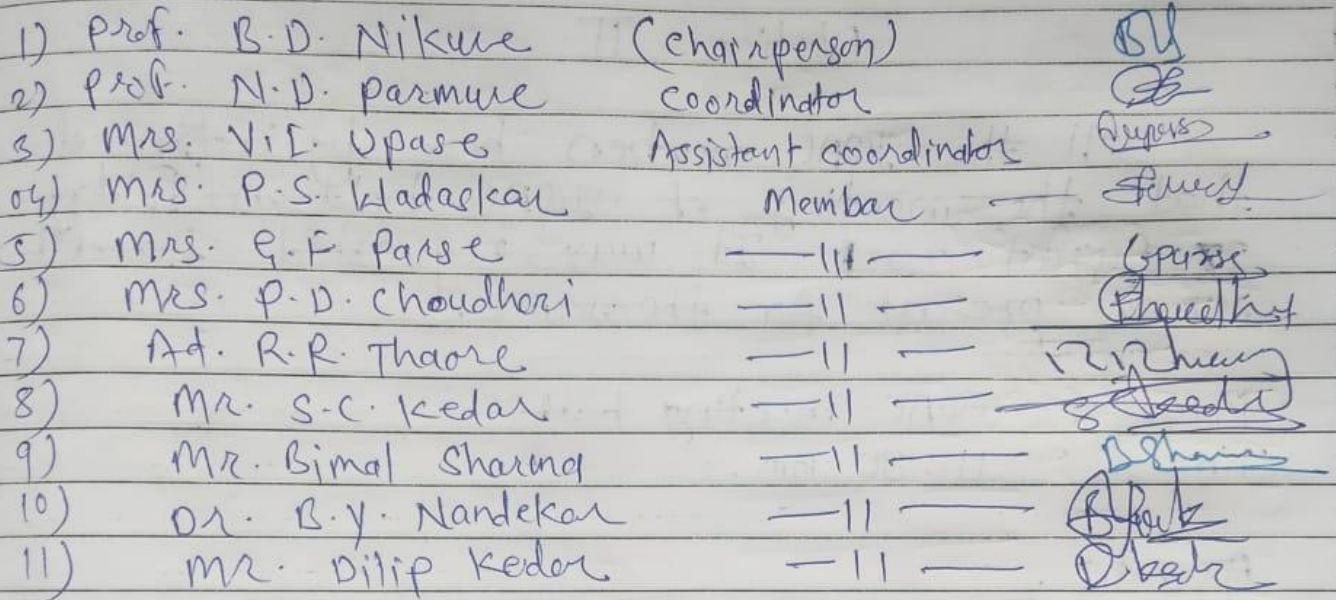 1) Prof. B.D. Nikure (Chairperson)
2) Prof. N.D. Parmure Coordinator
3) Mrs. V.I. Upase Assistant coordinator
04) Mrs. P.S. Wadaskar Membar —
5) Mrs. G.F Parse —11— Gparse
6) Mrs. P.D. Choudhari —11—
7) Ad. R.R. Thaore —11—
8) Mr. S.C. Kedar —11—
9) Mr. Bimal Sharma —11— BSharma
10) Dr. B.Y. Nandekar —11—
11) Mr. Dilip Kedar —11— Dkedar